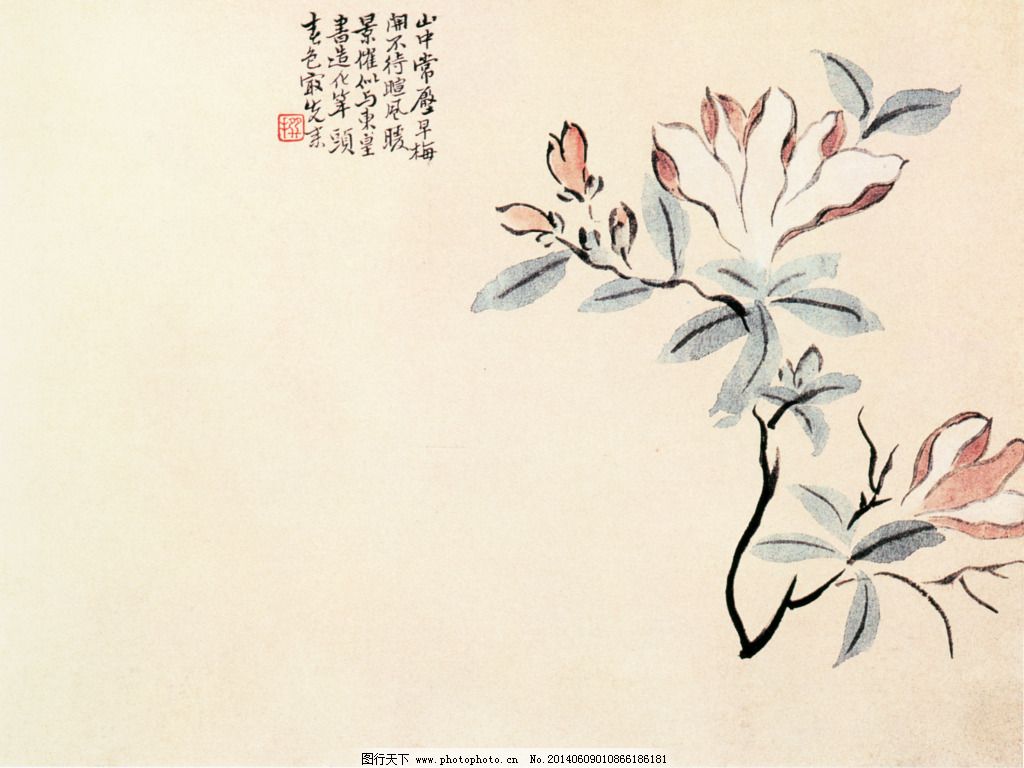 山中常壓早梅
開不待暄風暖
景催似与東皇
書造化筆頭
春色冣先来
图行天下 www.photophoto.cn No.20140609010866186181